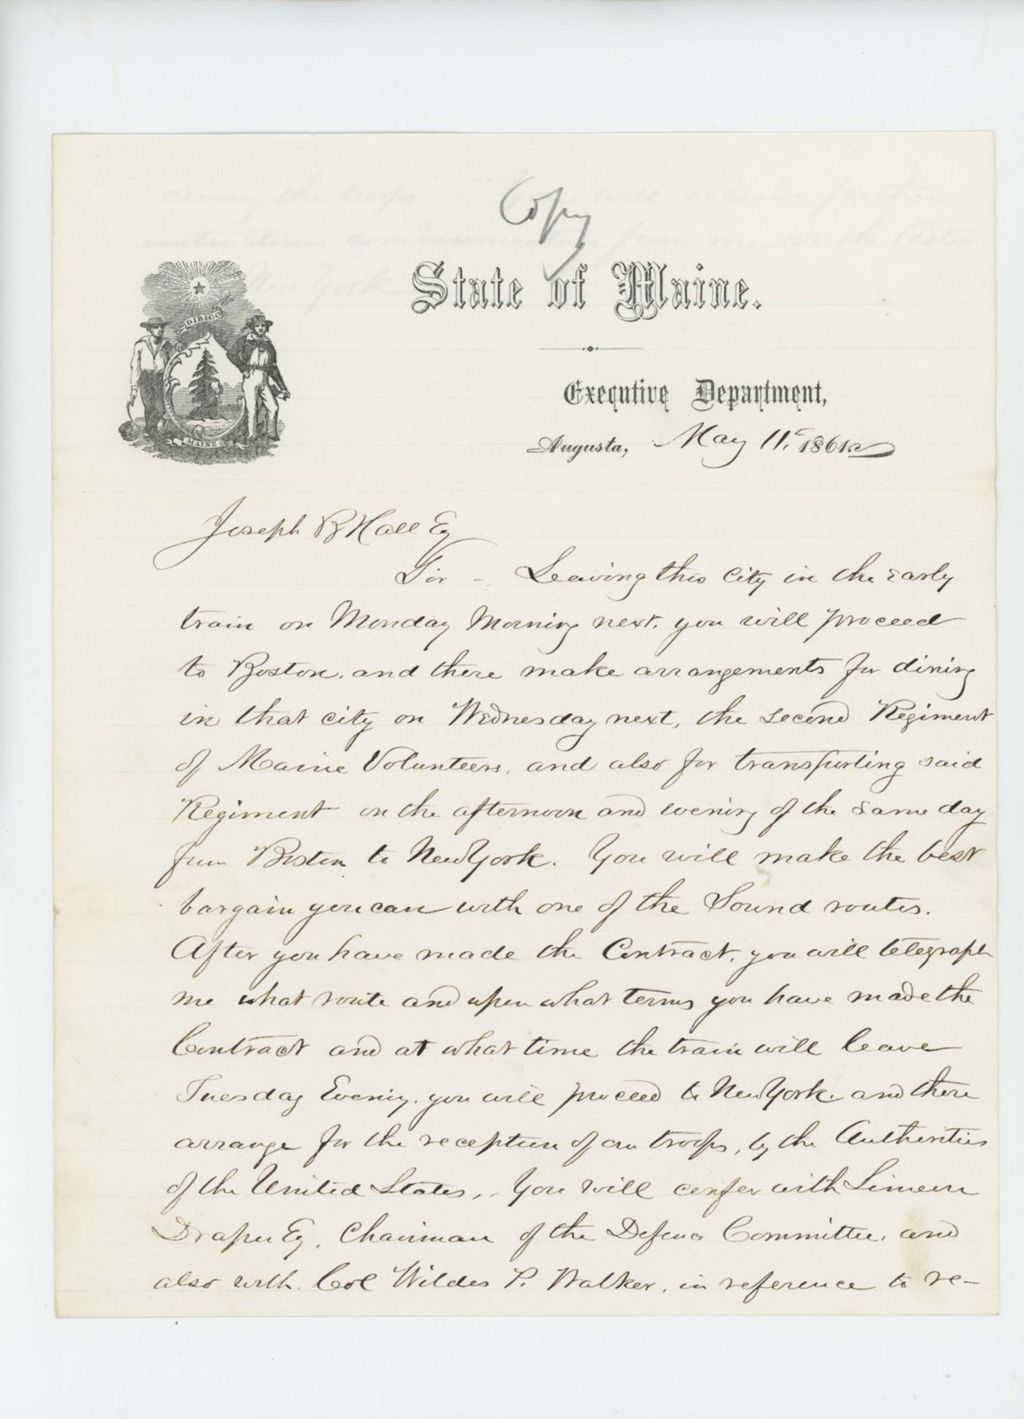 Copy
State of Maine.
Executive Department,
Augusta, May 11, 1861.
DIRIGO
MAINE
Joseph B Hall Eq
Sir - Leaving this City in the early
train on Monday Morning next, you will proceed
to Boston, and there make arrangements for dining
in that city on Wednesday next, the second Regiment
of Maine Volunteers, and also for transporting said
Regiment on the afternoon and evening of the same day
from Boston to New York. You will make the best
bargain you can with one of the Sound routes.
After you have made the Contract, you will telegraph
me what route and upon what terms you have made the
Contract and at what time the train will leave
Tuesday Evening, you will proceed to New York and there
arrange for the reception of our troops, by the Authorities
of the United States, - You will confer with Simeon
Draper Eq, Chairman of the Defence Committee, and
also with Col Wildes P. Walker, in reference to re-